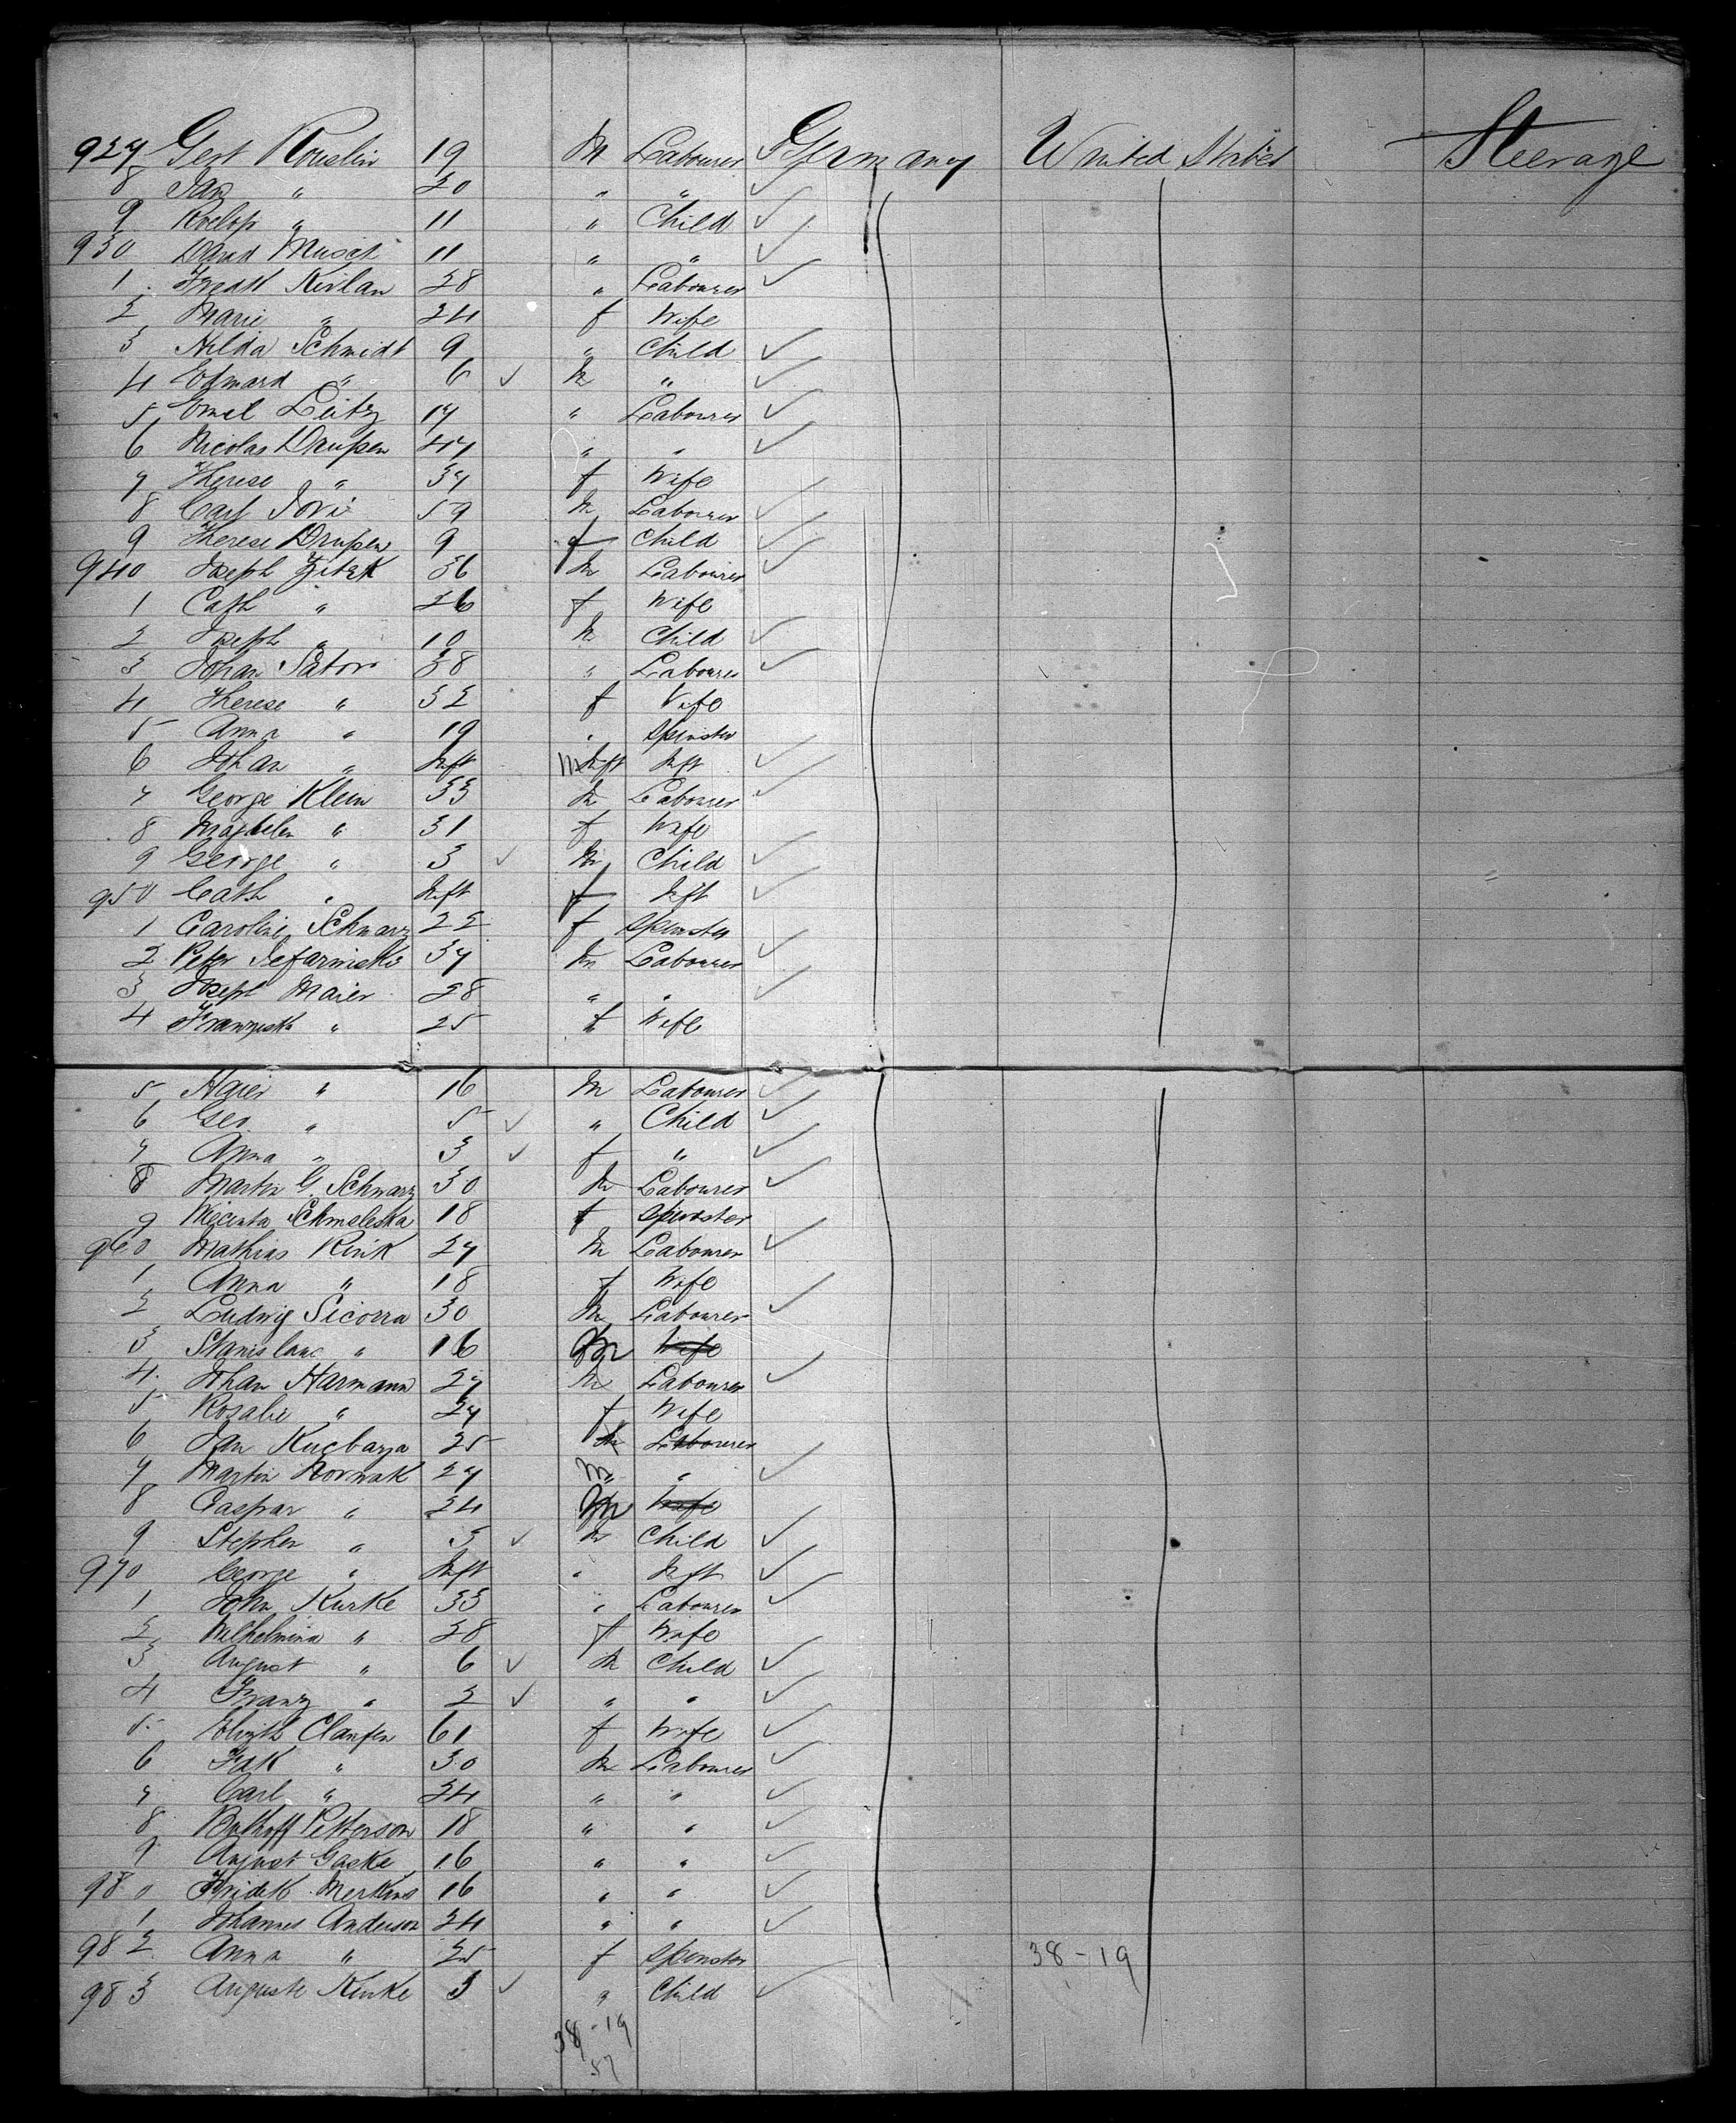 927 Gert 19 M Labourer Germany United States Steerage
8 Jan " 20 " "
9 Roelof " 11 " Child
930 David Musch 11 " "
1 Fredk Kirlan 28 " Labourer
2 Marie " 24 f Wife
3 Hilda Schmidt 9 " Child
4 Edward " 6 M "
5 Emil Leitz 17 " Labourer
6 Nicolas Drussen 47 " "
7 Therese " 37 f Wife
8 Carl 59 M Labourer
9 Therese Drussen 9 f Child
940 Joseph Zitek 36 M Labourer
1 Cath " 26 f Wife
2 Joseph " 10 M Child
3 Johan Sator 38 " Labourer
4 Therese " 32 f Wife
5 Anna " 19 " Spinster
6 Johan " Inft M Inft
7 George Klein 33 M Labourer
8 Magdelen " 31 f Wife
9 George " 3 M Child
950 Cath " Inft f Inft
1 Caroline Schwarz 22 f Spinster
2 Peter 37 M Labourer
3 Joseph Maier 28 " "
4 Franziska " 25 f Wife
5 " 16 M Labourer
6 Geo. " 5 " Child
7 Anna " 3 f "
8 Martin G. Schwarz 30 M Labourer
9 Schmeleska 18 f Spinster
960 Mathias Rink 27 M Labourer
1 Anna " 18 f Wife
2 Ludwig Sicorra 30 M Labourer
3 Stanislaus " 16 M Wife
4 Johan Harmann 27 M Labourer
5 Rosalie " 24 f Wife
6 Jan Kucbarja 25 M Labourer
7 Martin Nowak 27 M "
8 Caspar " 24 M Wife
9 Stephen " 3 M Child
970 George " Inft " Inft
1 John Kurke 33 " Labourer
2 Wilhelmina " 28 f Wife
3 August " 6 M Child
4 Franz " 2 " "
5 Elizth Claussen 61 f Wife
6 " 30 M Labourer
7 Carl " 24 " "
8 Petterson 18 " "
9 August Gaske 16 " "
980 Fridek Merkins 16 " "
1 Johannes Anderson 24 " "
982 Anna " 25 f Spinster 38-19
983 Auguste Kurke 3 " Child
38-19
57